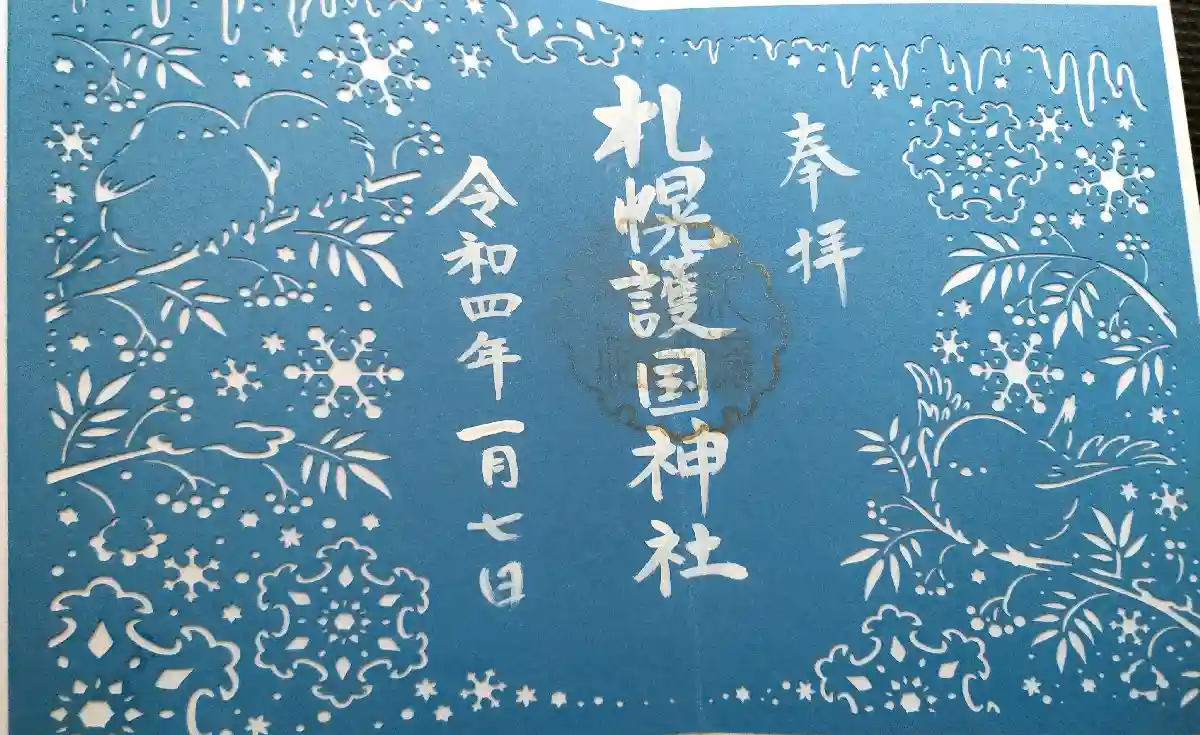 奉拝
札幌護国神社
令和四年一月七日